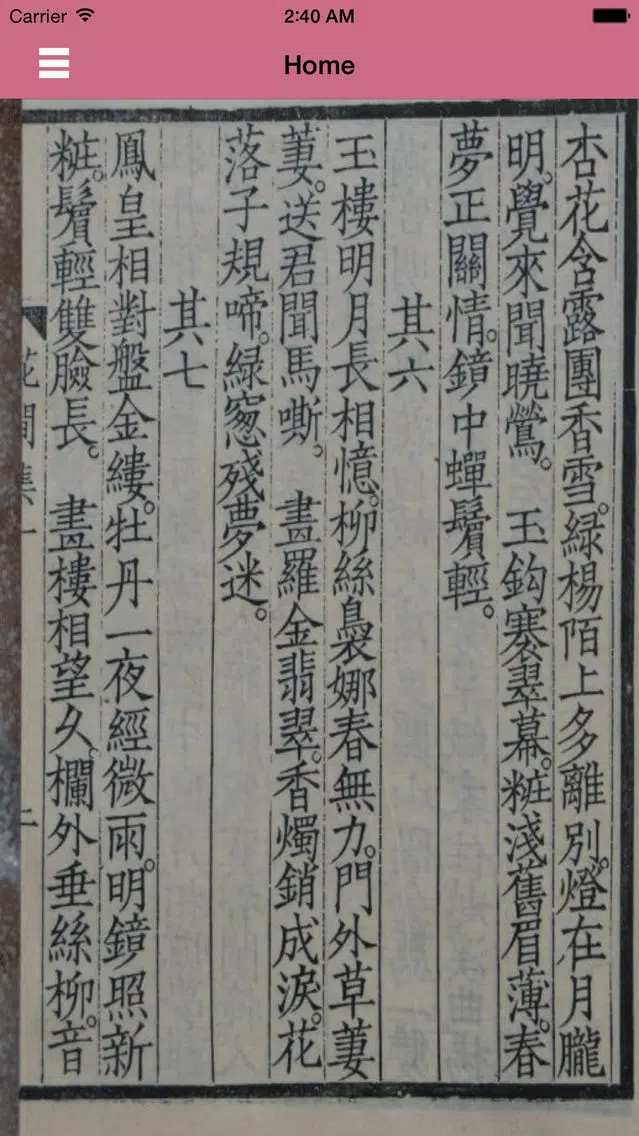 Carrier 2:40 AM
Home
杏花含露團香雪。綠楊陌上多離別。燈在月朧
明。覺來聞曉鶯。 玉鈎褰翠幕。粧淺舊眉薄。春
夢正關情。鏡中蟬鬢輕。
其六
玉樓明月長相憶。柳絲裊娜春無力。門外草萋
萋。送君聞馬嘶。 畫羅金翡翠。香燭銷成淚。花
落子規啼。綠窻殘夢迷。
其七
鳳皇相對盤金縷。牡丹一夜經微雨。明鏡照新
粧。鬢輕雙臉長。 畫樓相望久。欄外垂絲柳。音
花間集一